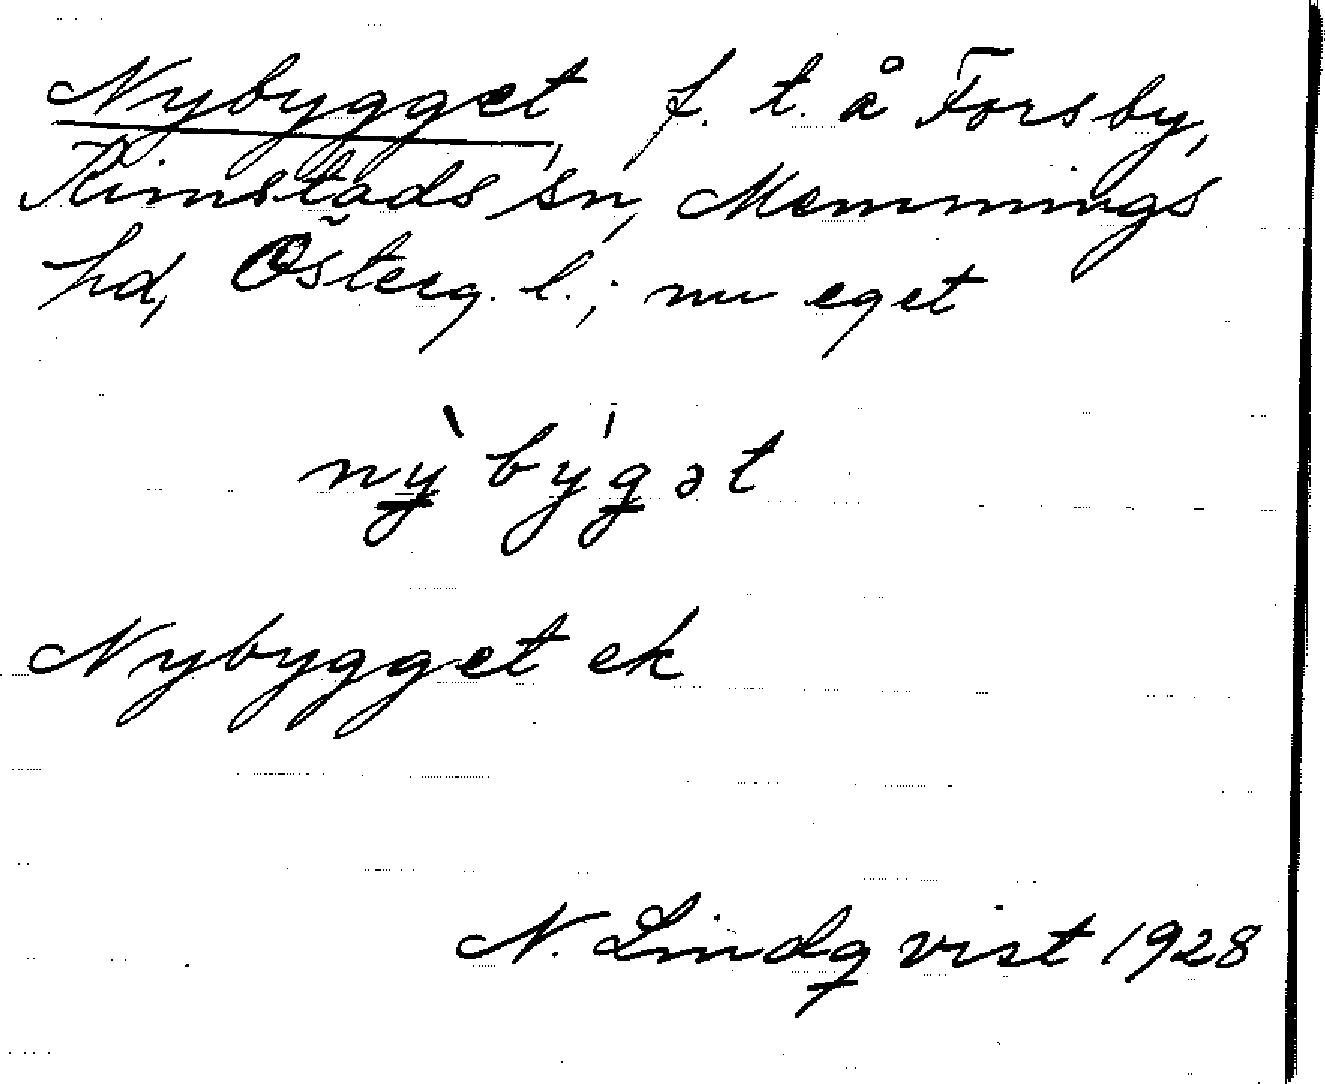 Nybygget, f. t. å Forsby,
Kimstads sn, Memmings
hd, Österg. l.; nu eget
nỳbýgət
Nybygget ek
N. Lindqvist 1928